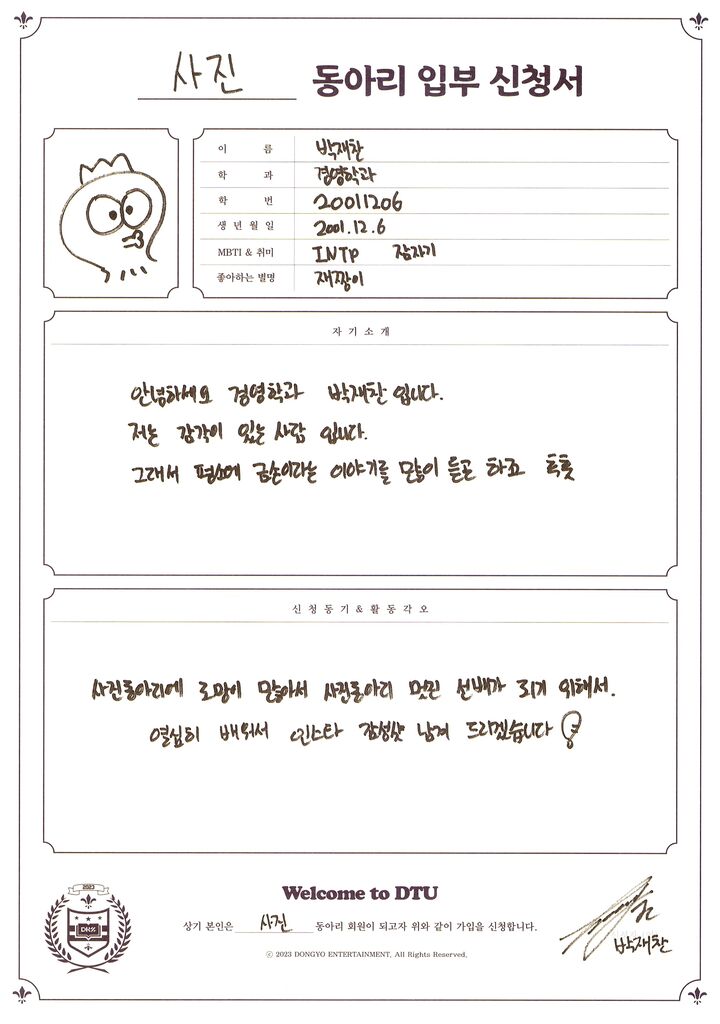 사진 동아리 입부 신청서
이 름 박재찬
학 과 경영학과
학 번 20011206
생 년 월 일 2001.12.6
MBTI & 취미 INTP 잠자기
좋아하는 별명 재짱이
자 기 소 개
안녕하세요 경영학과 박재찬입니다.
저는 감각이 있는 사람 입니다.
그래서 평소에 금손이라는 이야기를 많이 듣곤 하죠 훗훗
신 청 동 기 & 활 동 각 오
사진동아리에 로망이 많아서 사진동아리 멋진 선배가 되기 위해서.
열심히 배워서 인스타 감성샷 남겨 드리겠습니다
2023
DKZ
Welcome to DTU
상기 본인은 사진 동아리 회원이 되고자 위와 같이 가입을 신청합니다.
박재찬
ⓒ 2023 DONGYO ENTERTAINMENT, All Rights Reserved.